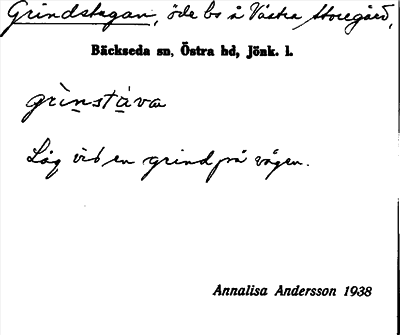 Grindstugan, öde bs å Västra Storegård,
Bäckseda sn, Östra hd, Jönk. l.
grìnstàva
Låg vid en grind på vägen.
Annalisa Andersson 1938